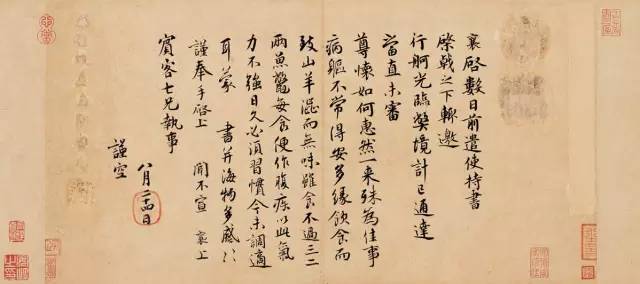 襄啓數日前遣使持書
棨戟之下輙邀
行舸光臨弊境計已通達
當直未審
尊懷如何惠然一来殊為佳事
病軀不常得安多縁飲食而
致山羊澁而無味雖食不過三二
兩魚鼈每食便作腹疾以此氣
力不強日久必須習慣今未調適
耳蒙 書并海物多感〻
謹奉手啓上 聞不宣 襄上
賓客七兄執事
八月二十四日
謹空